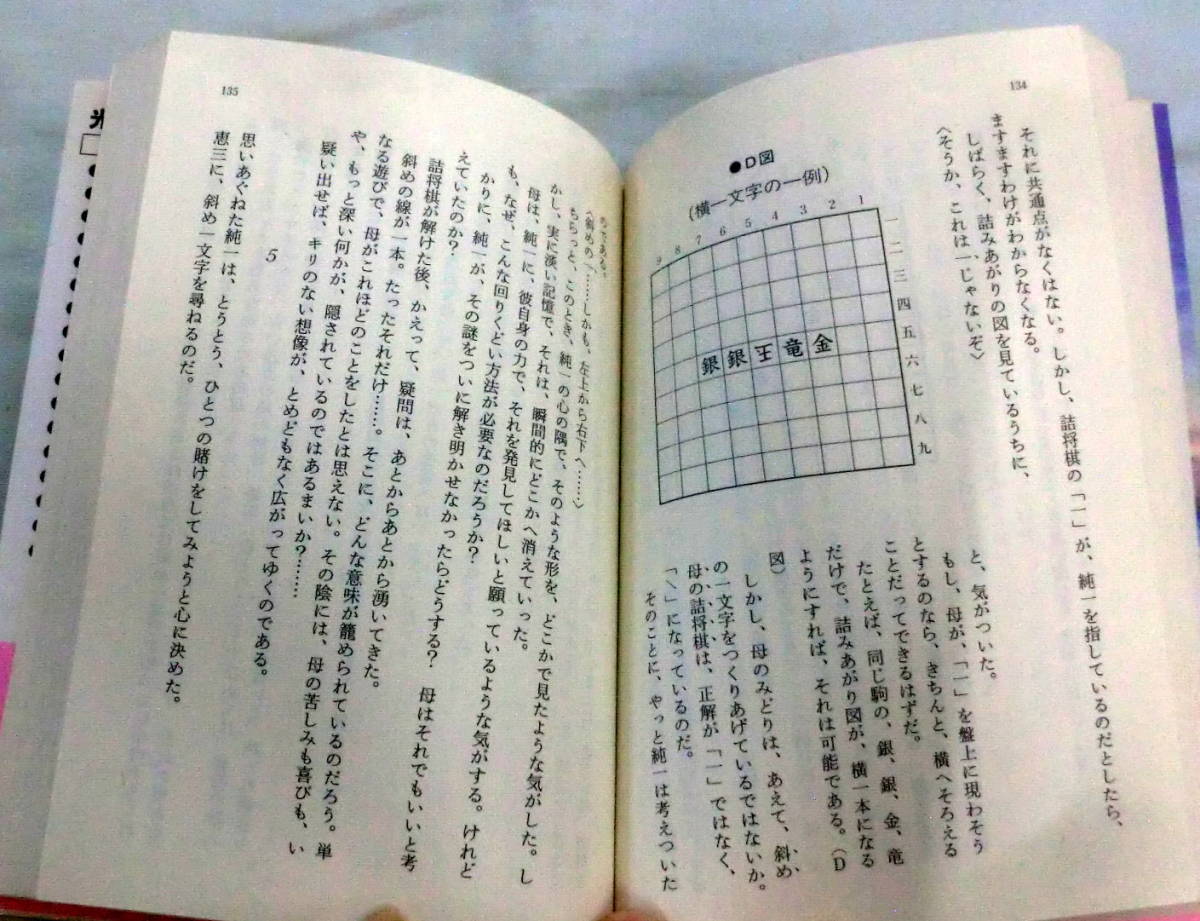 134
それに共通点がなくはない。しかし、詰将棋の「一」が、純一を指しているのだとしたら、
ますますわけがわからなくなる。
しばらく、詰みあがりの図を見ているうちに、
〈そうか、これは一じゃないぞ〉
と、気がついた。
もし、母が、「一」を盤上に現わそう
とするのなら、きちんと、横へそろえる
ことだってできるはずだ。
たとえば、同じ駒の、銀、銀、金、竜
だけで、詰みあがり図が、横一本になる
ようにすれば、それは可能である。（D
図）
しかし、母のみどりは、あえて、斜め
の一文字をつくりあげているではないか。
母の詰将棋は、正解が「一」ではなく、
「＼」になっているのだ。
そのことに、やっと純一は考えついた
●D図
（横一文字の一例）
9 8 7 6 5 4 3 2 1
一
二
三
四
五
六
七
八
九
銀 銀 王 竜 金
135
のである。
〈斜めの一……しかも、左上から右下へ……〉
ちらっと、このとき、純一の心の隅で、そのような形を、どこかで見たような気がした。し
かし、実に淡い記憶で、それは、瞬間的にどこかへ消えていった。
母は、純一に、彼自身の力で、それを発見してほしいと願っているような気がする。けれど
も、なぜ、こんな回りくどい方法が必要なのだろうか？
かりに、純一が、その謎をついに解き明かせなかったらどうする？　母はそれでもいいと考
えていたのか？
詰将棋が解けた後、かえって、疑問は、あとからあとから湧いてきた。
斜めの線が一本。たったそれだけ……。そこに、どんな意味が籠められているのだろう。単
なる遊びで、母がこれほどのことをしたとは思えない。その陰には、母の苦しみも喜びも、い
や、もっと深い何かが、隠されているのではあるまいか？……
疑い出せば、キリのない想像が、とめどもなく広がってゆくのである。
5
思いあぐねた純一は、とうとう、ひとつの賭けをしてみようと心に決めた。
恵三に、斜め一文字を尋ねるのだ。